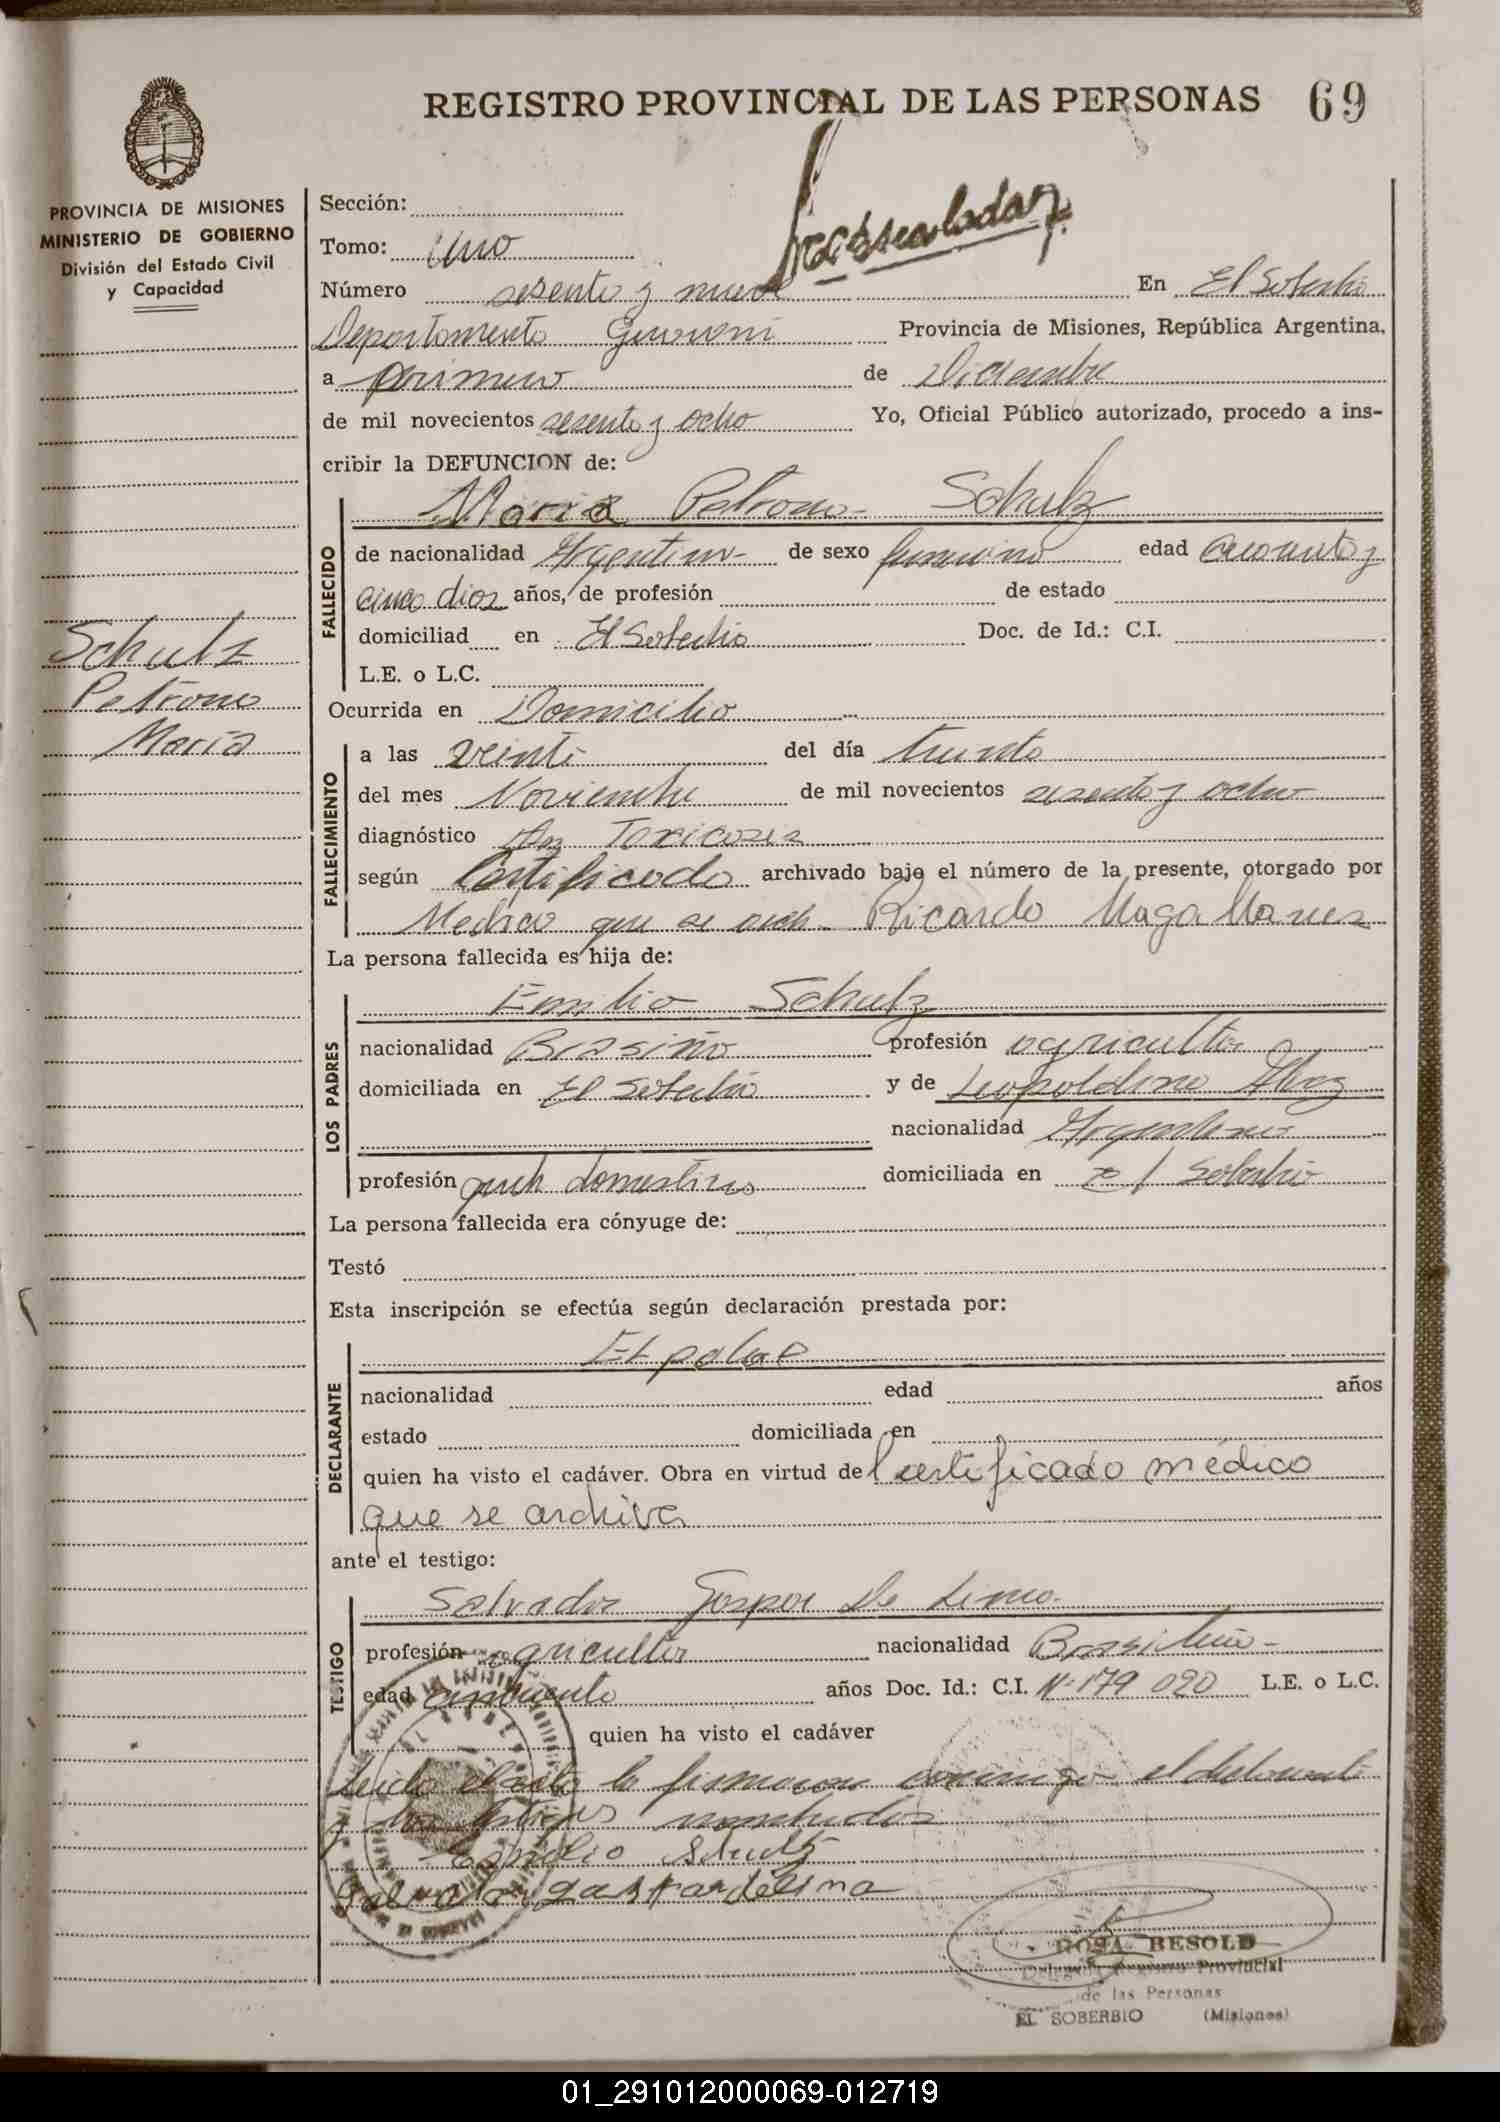 REGISTRO PROVINCIAL DE LAS PERSONAS 69
PROVINCIA DE MISIONES
MINISTERIO DE GOBIERNO
División del Estado Civil
y Capacidad
Sección:
Tomo: Uno
Número sesenta y nueve En El Soberbio
Departamento Guarani Provincia de Misiones, República Argentina,
a primero de Diciembre
de mil novecientos sesenta y ocho Yo, Oficial Público autorizado, procedo a ins-
cribir la DEFUNCION de:
Maria Petrona Schulz
FALLECIDO
de nacionalidad Argentina de sexo femenino edad cuarenta y
cinco dias años, de profesión de estado
domiciliad en El Soberbio Doc. de Id.: C.I.
L.E. o L.C.
Schulz
Petrona
Maria
Ocurrida en Domicilio
FALLECIMIENTO
a las veinte del día treinta
del mes Noviembre de mil novecientos sesenta y ocho
diagnóstico Toxicosis
según Certificado archivado bajo el número de la presente, otorgado por
Medico que se arch. Ricardo Magallanes
La persona fallecida es hija de:
LOS PADRES
Emilio Schulz
nacionalidad Brasileño profesión agricultor
domiciliada en El Soberbio y de Leopoldina Alvez
nacionalidad Argentina
profesión domesticos domiciliada en El Soberbio
La persona fallecida era cónyuge de:
Testó
Esta inscripción se efectúa según declaración prestada por:
DECLARANTE
El padre
nacionalidad edad años
estado domiciliada en
quien ha visto el cadáver. Obra en virtud de Certificado médico
que se archiva
ante el testigo:
TESTIGO
Salvador Gaspar De Lima
profesión agricultor nacionalidad Brasileño
edad cincuenta años Doc. Id.: C.I. Nº 179 020 L.E. o L.C.
quien ha visto el cadáver
Leido el acta la firmaron conmigo el declarante
y los testigos
Emilio Schulz
Salvador gaspar delima
ROSA BESOLD
Delegada Registro Provincial
de las Personas
EL SOBERBIO (Misiones)
01_291012000069-012719